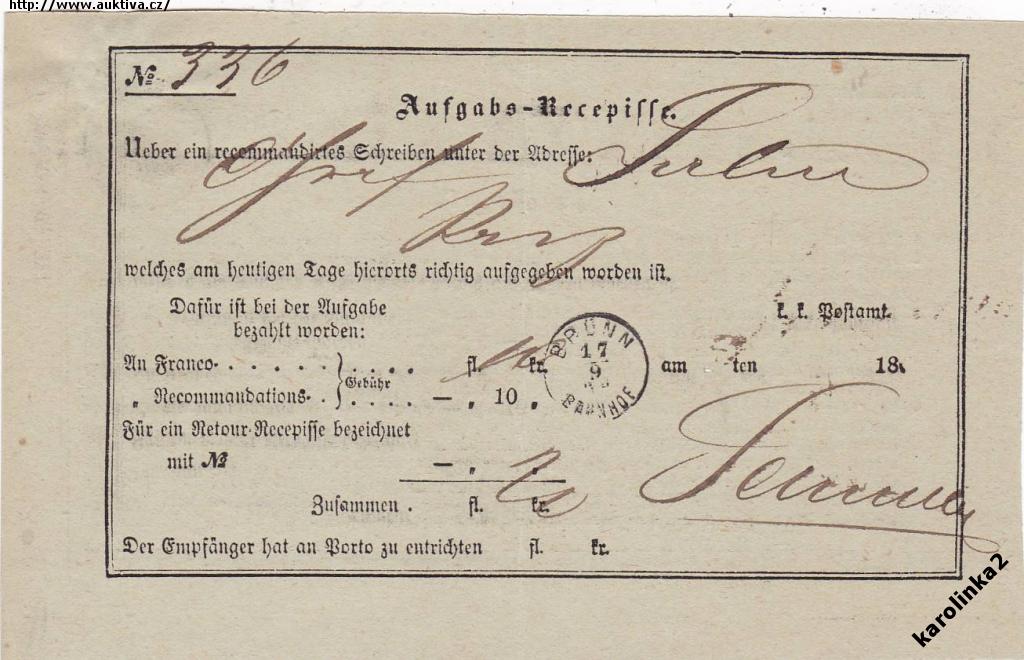 http://www.auktiva.cz/
№ 336
Aufgabs-Recepisse.
Ueber ein recommandirtes Schreiben unter der Adresse:
welches am heutigen Tage hierorts richtig aufgegeben worden ist.
Dafür ist bei der Aufgabe
bezahlt worden:
k. k. Postamt.
BRÜNN
17
9
BAHNHOF
An Franco . . . . . } . . . . fl. kr. am ten 18
„ Recommandations . . } Gebühr . . . . — „ 10 „
Für ein Retour-Recepisse bezeichnet
mit № — „ „
Zusammen . fl. kr.
Der Empfänger hat an Porto zu entrichten fl. kr.
karolinka2